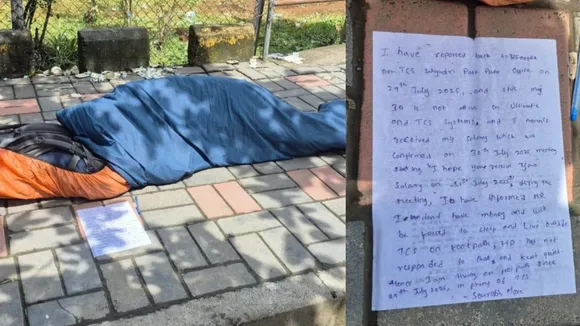 I have reported back to
TCS Sahyadri Park Pune Office on
29th July 2025, and still my
ID is not active on Ultimatix
and TCS Systems, and I haven't
received my salary which was
confirmed on 30th July 2025 meeting
stating "I hope you receive your
Salary on 31st July 2025", during the
meeting, I have informed HR
I don't have money and will
be forced to sleep and live outside
TCS on footpath, HR has not
responded to that, and kept quiet.
Hence I am living on footpath since
29th July 2025, in front of TCS
- Saurabh More